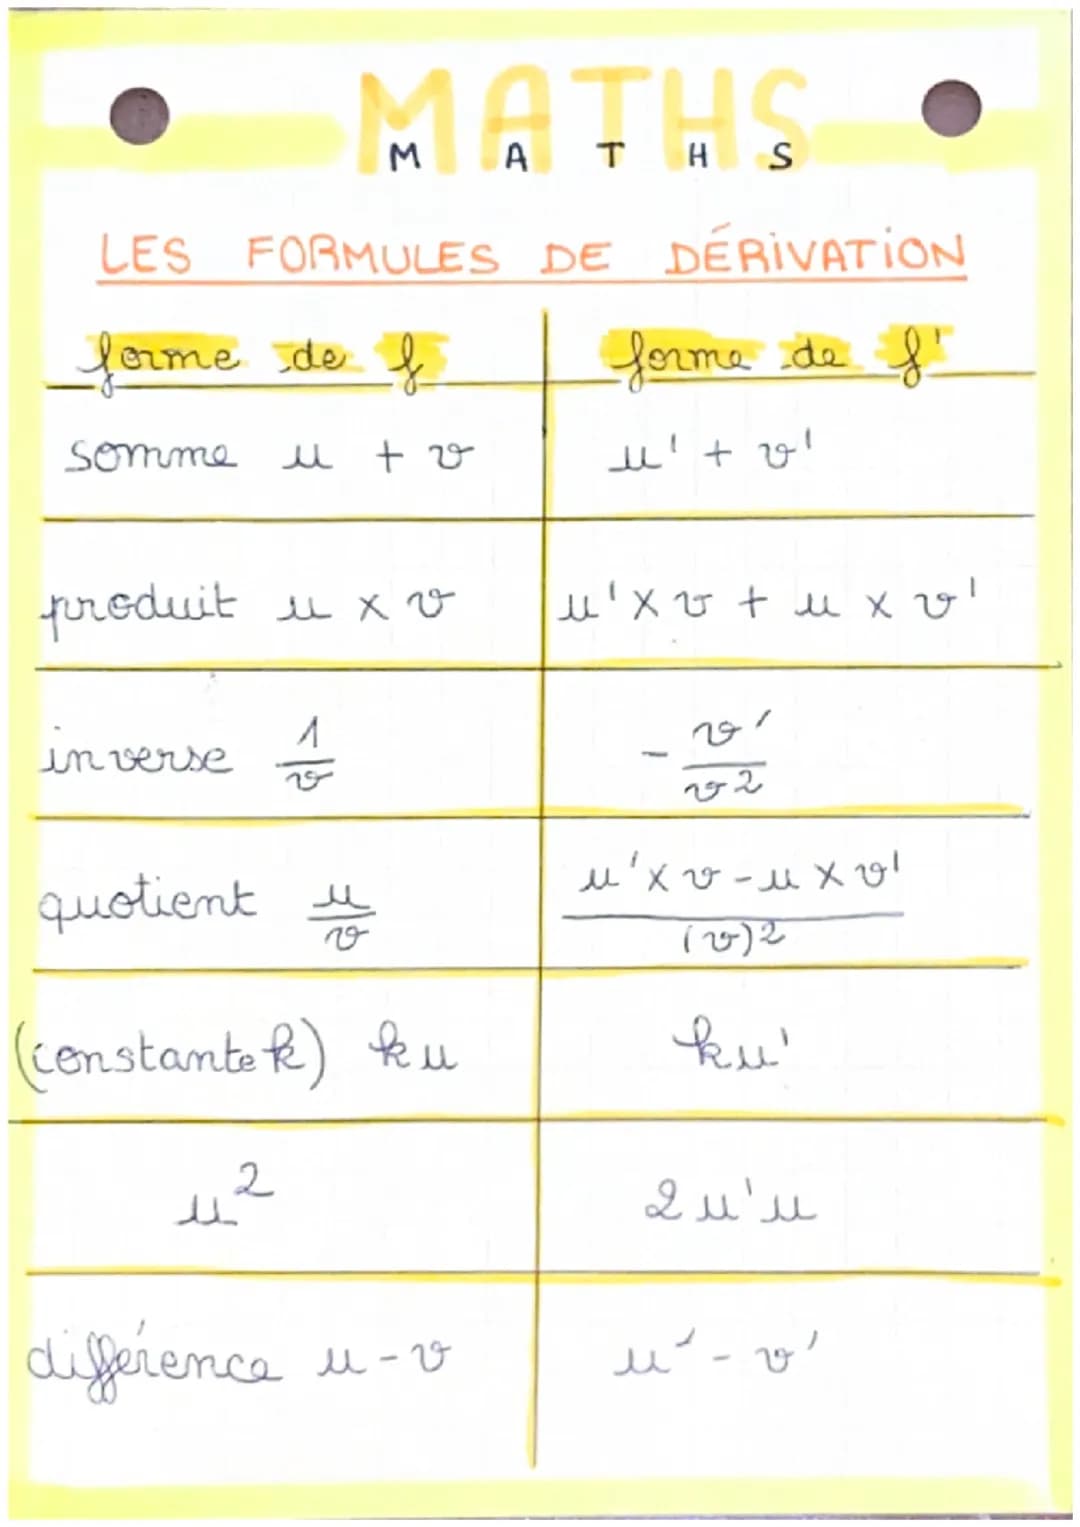 MATHS
M A T H S
LES FORMULES DE DÉRIVATION
forme de f | forme de f'
somme u + v | u' + v'
produit u × v | u' × v + u × v'
inverse 1/v | - v'/v²
quotient u/v | u' × v - u × v' / (v)²
(constante k) ku | ku'
u² | 2u'u
différence u - v | u' - v'